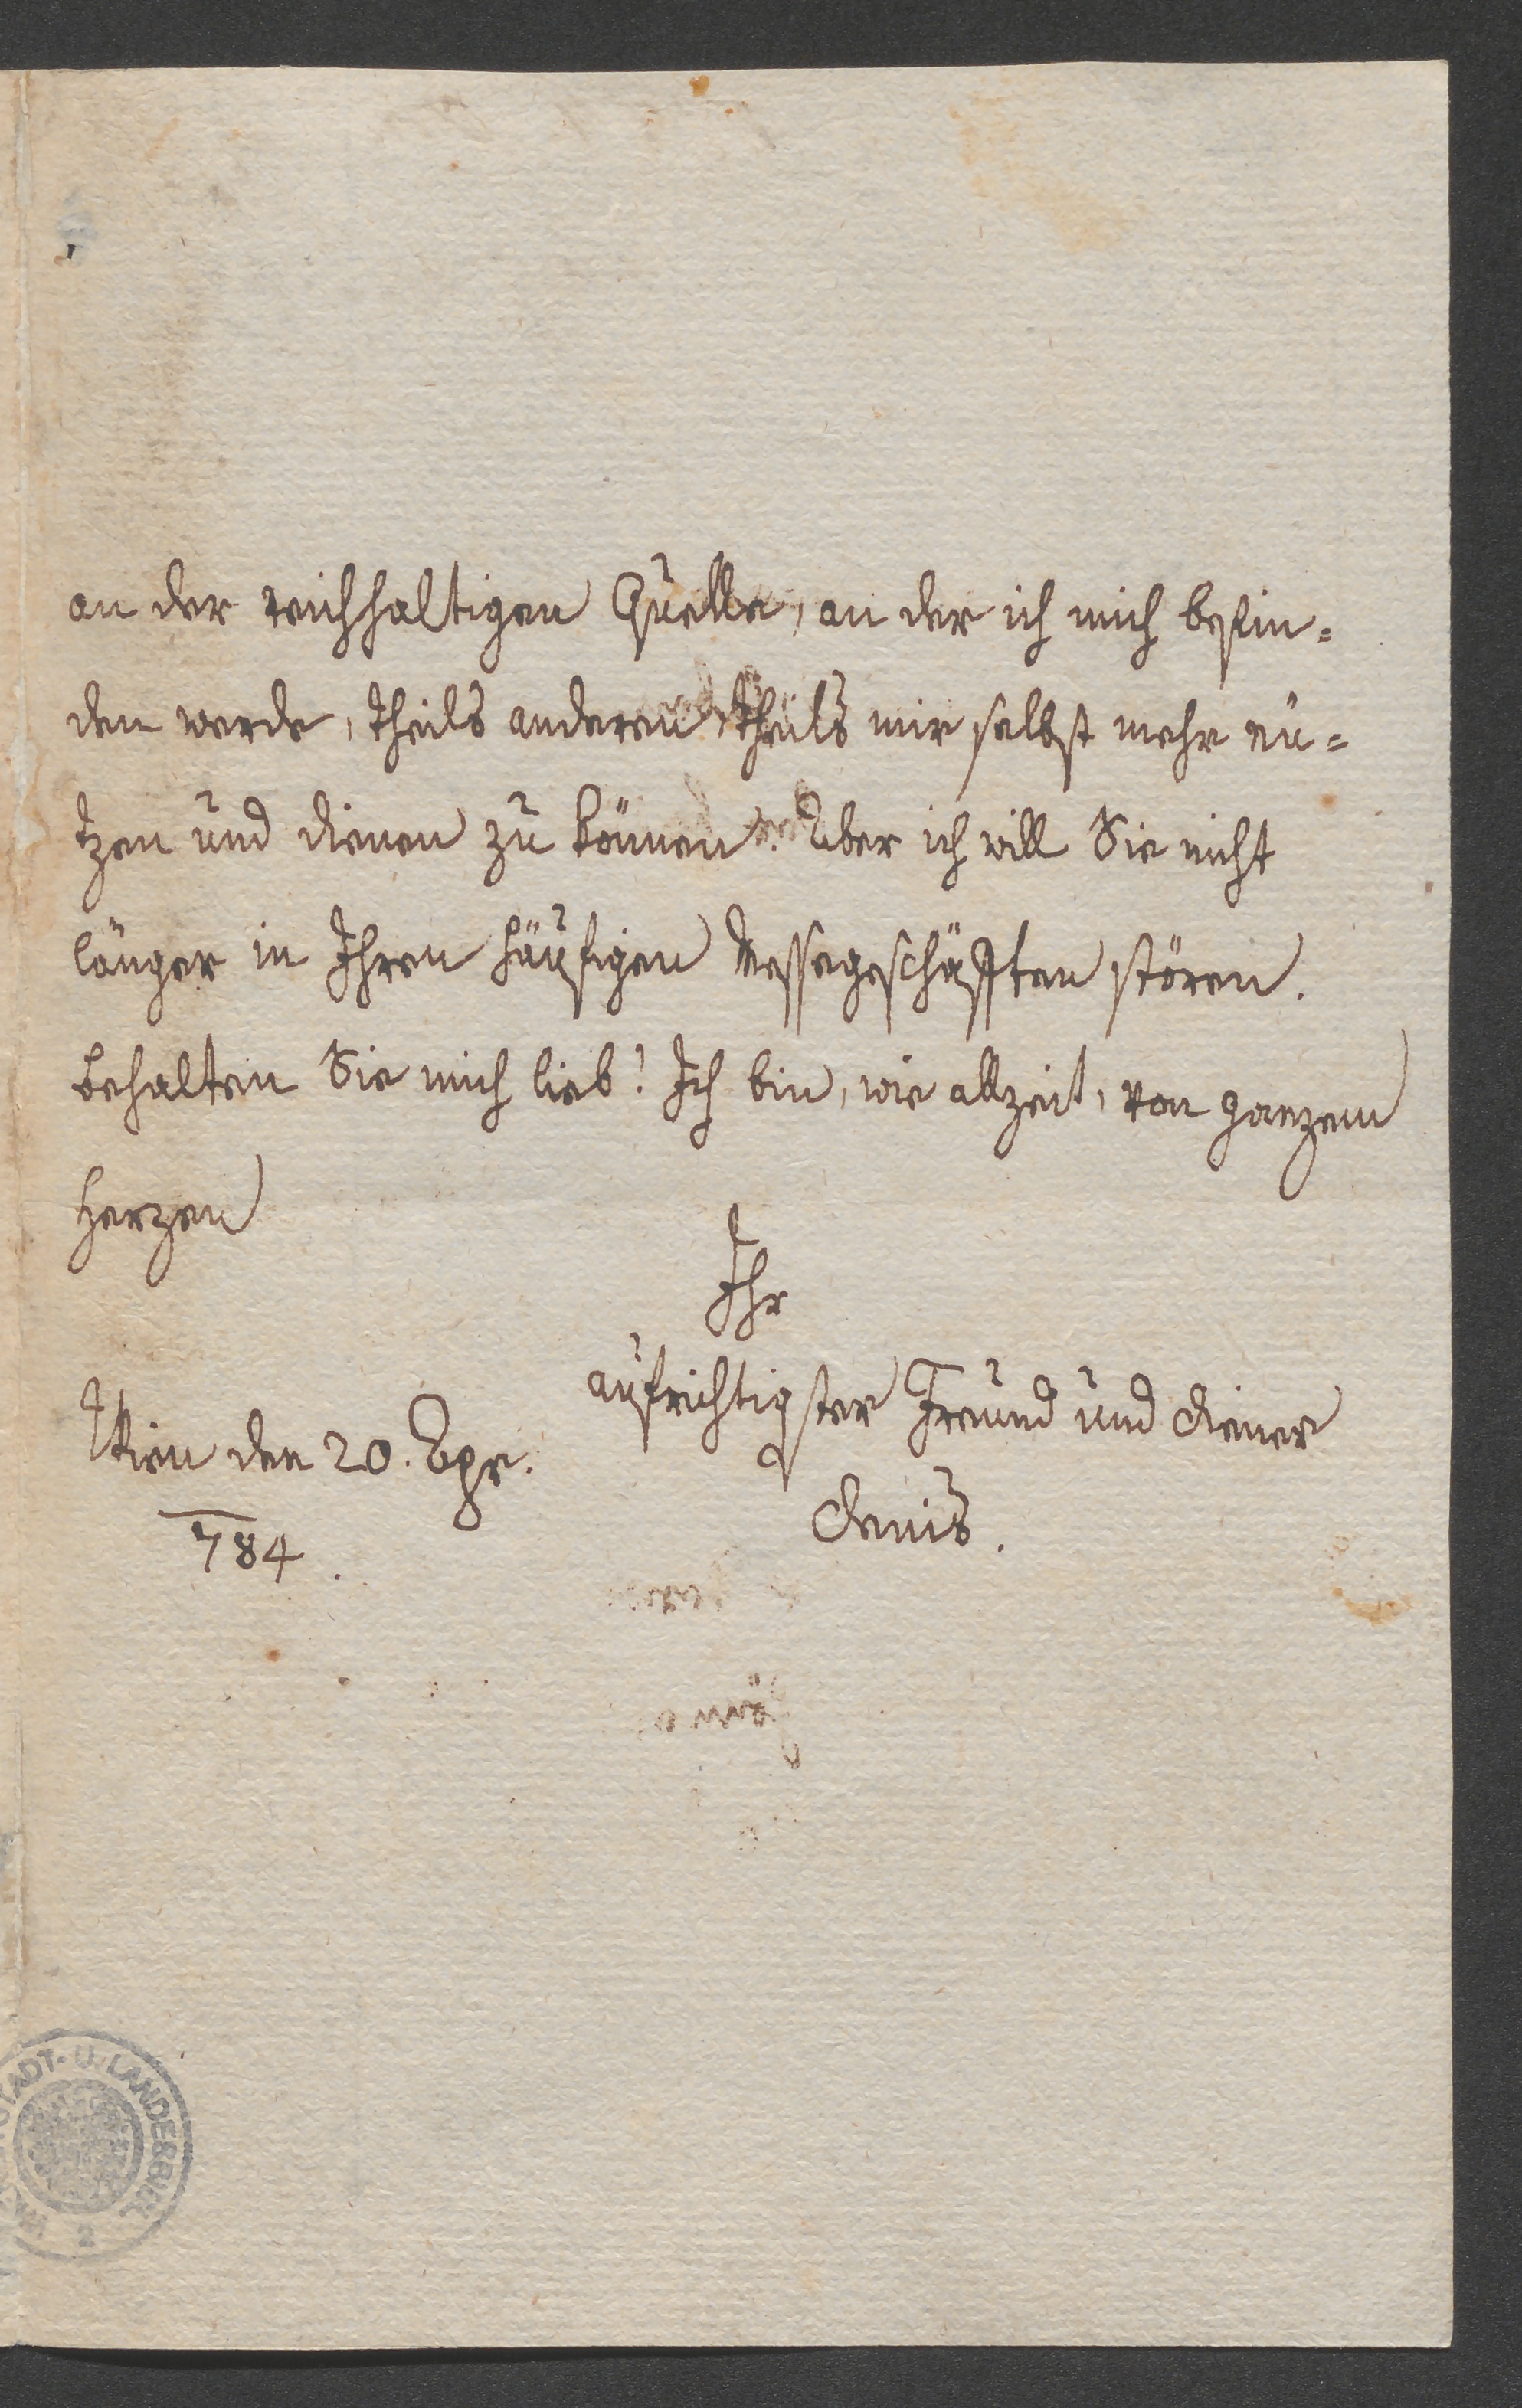 an der reichhaltigen Quelle, an der ich mich befin=
den werde, theils anderen theils mir selbst mehr nü=
tzen und dienen zu können. Aber ich will Sie nicht
länger in Ihren häufigen Messegeschäfften stören.
Behalten Sie mich lieb! Ich bin, wie allzeit, von ganzem
Herzen
Ihr
aufrichtigster Freund und Diener
Wien den 20. Apr.
Denis.
784.
STADT- U. LANDESBIBL